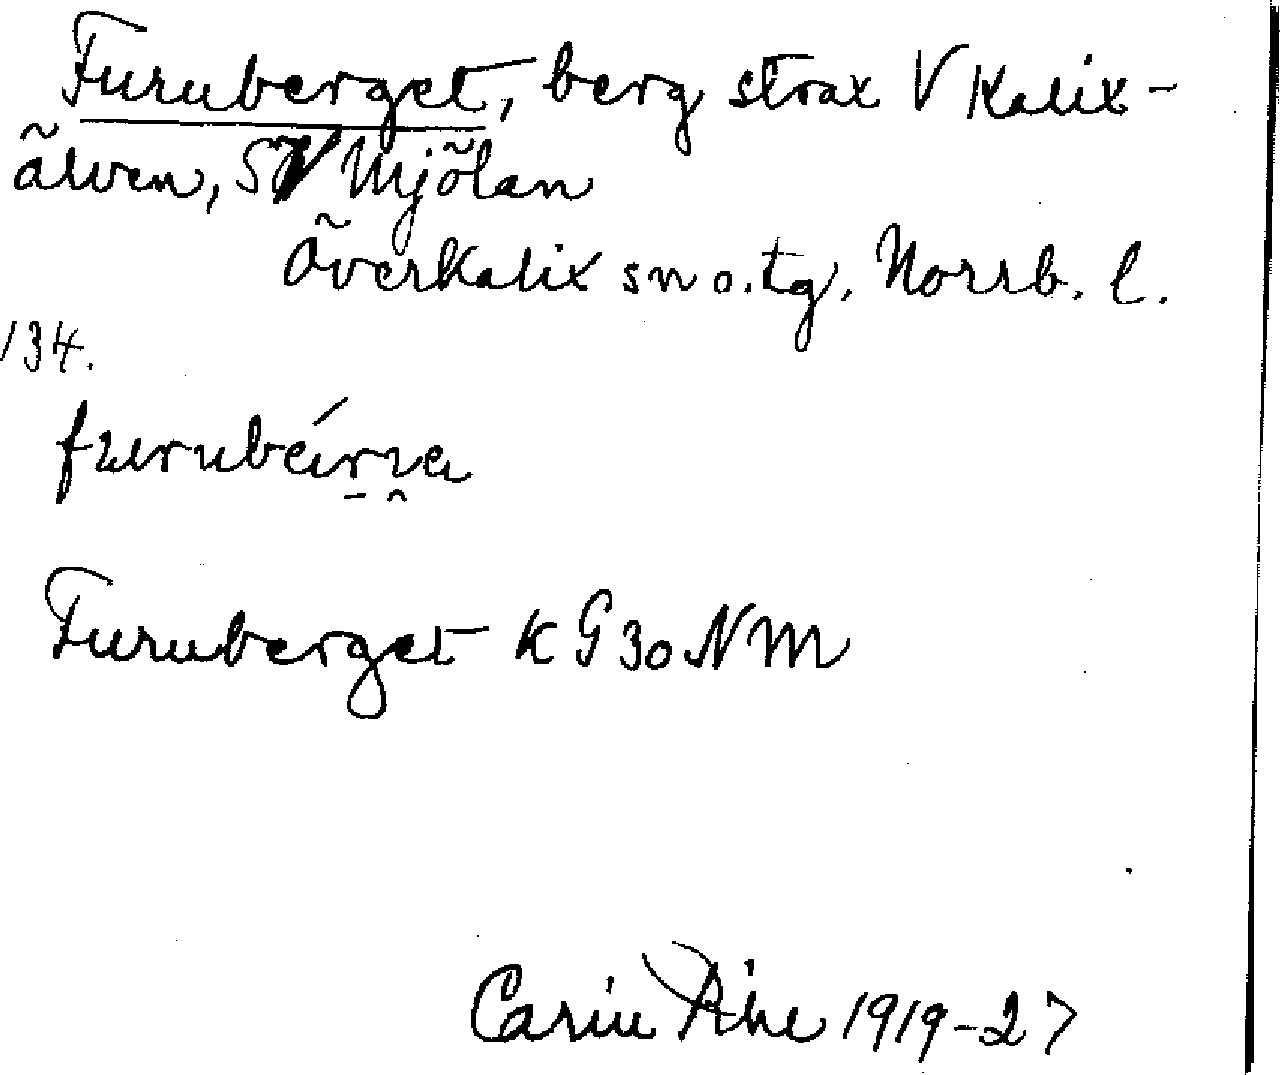 Furuberget, berg strax V Kalix-
älven, SV Mjölan
Överkalix sn o. tg, Norrb. l.
134.
Furuberget K G 30 NM
Carin Pihl 1919-27